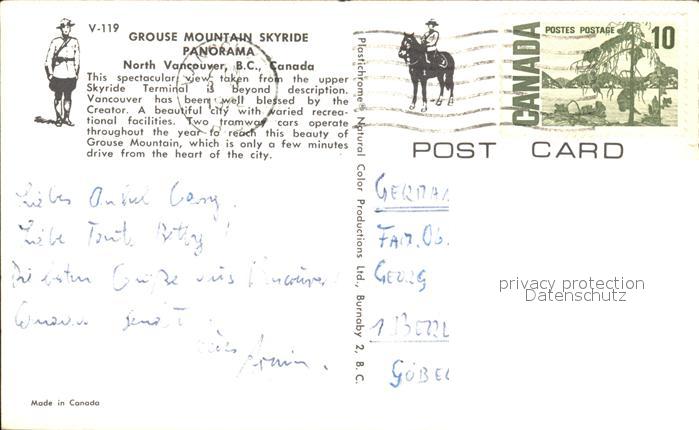 V-119
GROUSE MOUNTAIN SKYRIDE
PANORAMA
North Vancouver, B.C., Canada
This spectacular view taken from the upper
Skyride Terminal is beyond description.
Vancouver has been well blessed by the
Creator. A beautiful city with varied recrea-
tional facilities. Two tramway cars operate
throughout the year to reach this beauty of
Grouse Mountain, which is only a few minutes
drive from the heart of the city.
Liebes Onkel Georg.
Liebe Tante Betty!
Die besten Grüße aus Vancouver
sendet
Armin.
Made in Canada
Plastichrome® Natural Color Productions Ltd., Burnaby 2, B. C.
CANADA
POSTES POSTAGE
10
POST CARD
GERMAN
FAM. OB.
GEORG
1 BERL
GÖBEL
privacy protection
Datenschutz